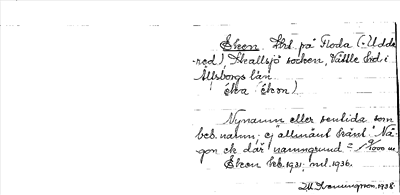 Ekon. Hrt. på Floda (=Udde-
röd), Skallsjö socken, Vättle hd i
Älvsborgs län.
ekon)
Nynamn eller sentida som
beb. namn; ej allmänt känt. Nå-
gon ek där namngrund =
Ekon beb. 1931; ml. 1936.
1938.